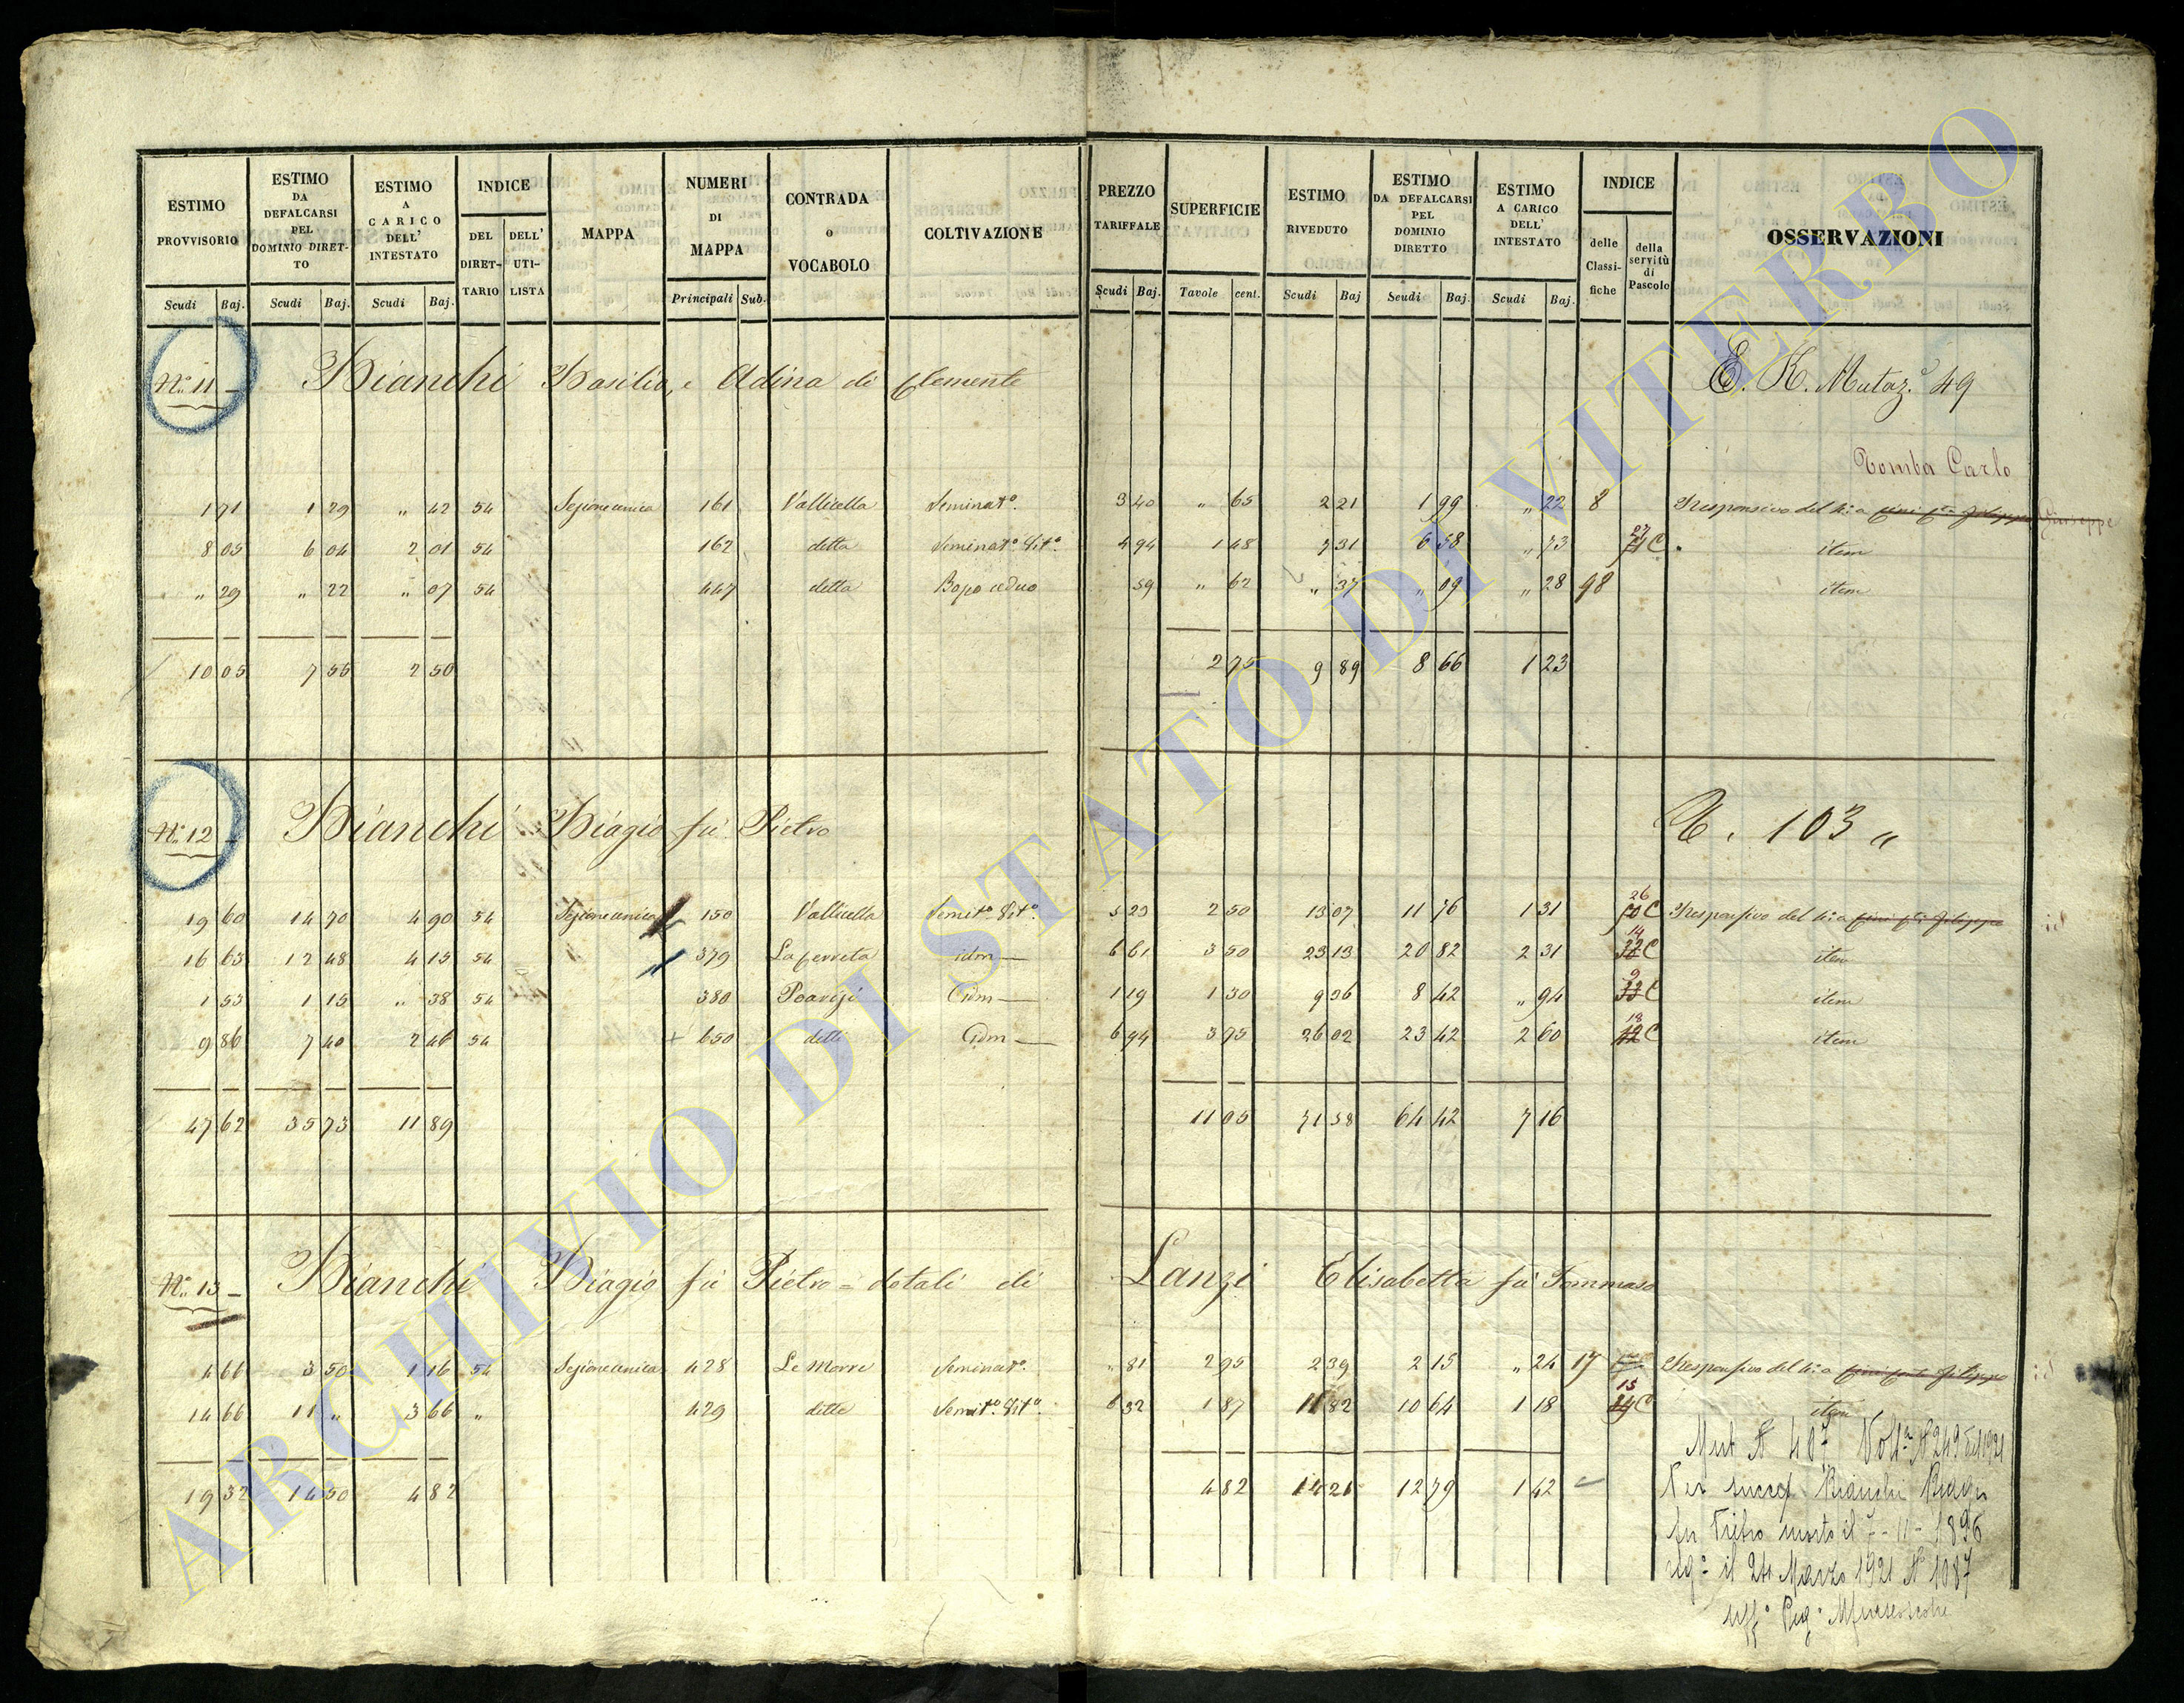 ESTIMO PROVVISORIO | ESTIMO DA DEFALCARSI PEL DOMINIO DIRETTO | ESTIMO A CARICO DELL' INTESTATO | INDICE | MAPPA | NUMERI DI MAPPA | CONTRADA o VOCABOLO | COLTIVAZIONE | PREZZO TARIFFALE | SUPERFICIE | ESTIMO RIVEDUTO | ESTIMO DA DEFALCARSI PEL DOMINIO DIRETTO | ESTIMO A CARICO DELL' INTESTATO | INDICE | OSSERVAZIONI
DEL DIRETTARIO | DELL' UTILISTA | delle Classifiche | della servitù di Pascolo
Scudi Baj. | Scudi Baj. | Scudi Baj. | Principali Sub. | Scudi Baj. | Tavole cent. | Scudi Baj | Scudi Baj. | Scudi Baj.
N.° 11 Bianchi Basilio, e Adina di Clemente Mutaz. 49
Tomba Carlo
1 71 | 1 29 | " 42 | 54 | Sezione unica | 161 | Vallicella | Seminat.° | 3 40 | " 65 | 2 21 | 1 99 | " 22 | 8 | Responsivo del 4.° a Giuseppe
8 05 | 6 04 | 2 01 | 54 | 162 | detta | Seminat.° Vit.° | 4 94 | 1 48 | 7 31 | 6 58 | " 73 | 27 C | item
" 29 | " 22 | " 07 | 54 | 447 | detta | Bosco ceduo | 59 | " 62 | " 37 | " 09 | " 28 | 98 | item
10 05 | 7 55 | 2 50 | 2 75 | 9 89 | 8 66 | 1 23
N.° 12 Bianchi Biagio fù Pietro 103 "
19 60 | 14 70 | 4 90 | 54 | Sezione unica | 150 | Vallicella | Semit.° Vit.° | 5 23 | 2 50 | 13 07 | 11 76 | 1 31 | 26 C | Responsivo del 4.° a id
16 63 | 12 48 | 4 15 | 54 | 379 | La Cerreta | idm | 6 61 | 3 50 | 23 13 | 20 82 | 2 31 | 14 C | item
1 53 | 1 15 | " 38 | 54 | 380 | idm | 1 19 | 1 30 | 9 36 | 8 42 | " 94 | 9 C | item
9 86 | 7 40 | 2 46 | 54 | + 650 | detti | idm | 6 94 | 3 75 | 26 02 | 23 42 | 2 60 | 13 C | item
47 62 | 35 73 | 11 89 | 11 05 | 71 58 | 64 42 | 7 16
N.° 13 Bianchi Biagio fù Pietro = dotali di Lanzi Elisabetta fù Tommaso
4 66 | 3 50 | 1 16 | 54 | Sezione unica | 428 | Le Morre | Seminat.° | " 81 | 2 95 | 2 39 | 2 15 | " 24 | 17 | Responsivo del 4.° a id
14 66 | 11 " | 3 66 | " | 429 | dette | Semit.° Vit.° | 6 32 | 1 87 | 11 82 | 10 64 | 1 18 | 15 C | item
19 32 | 14 50 | 4 82 | 4 82 | 14 21 | 12 79 | 1 42
Mut N 407 N 249 del 1921
Per success Bianchi Biagio
fu Pietro morto il -11-1896
reg° il 24 Marzo 1921 N 1087
ARCHIVIO DI STATO DI VITERBO